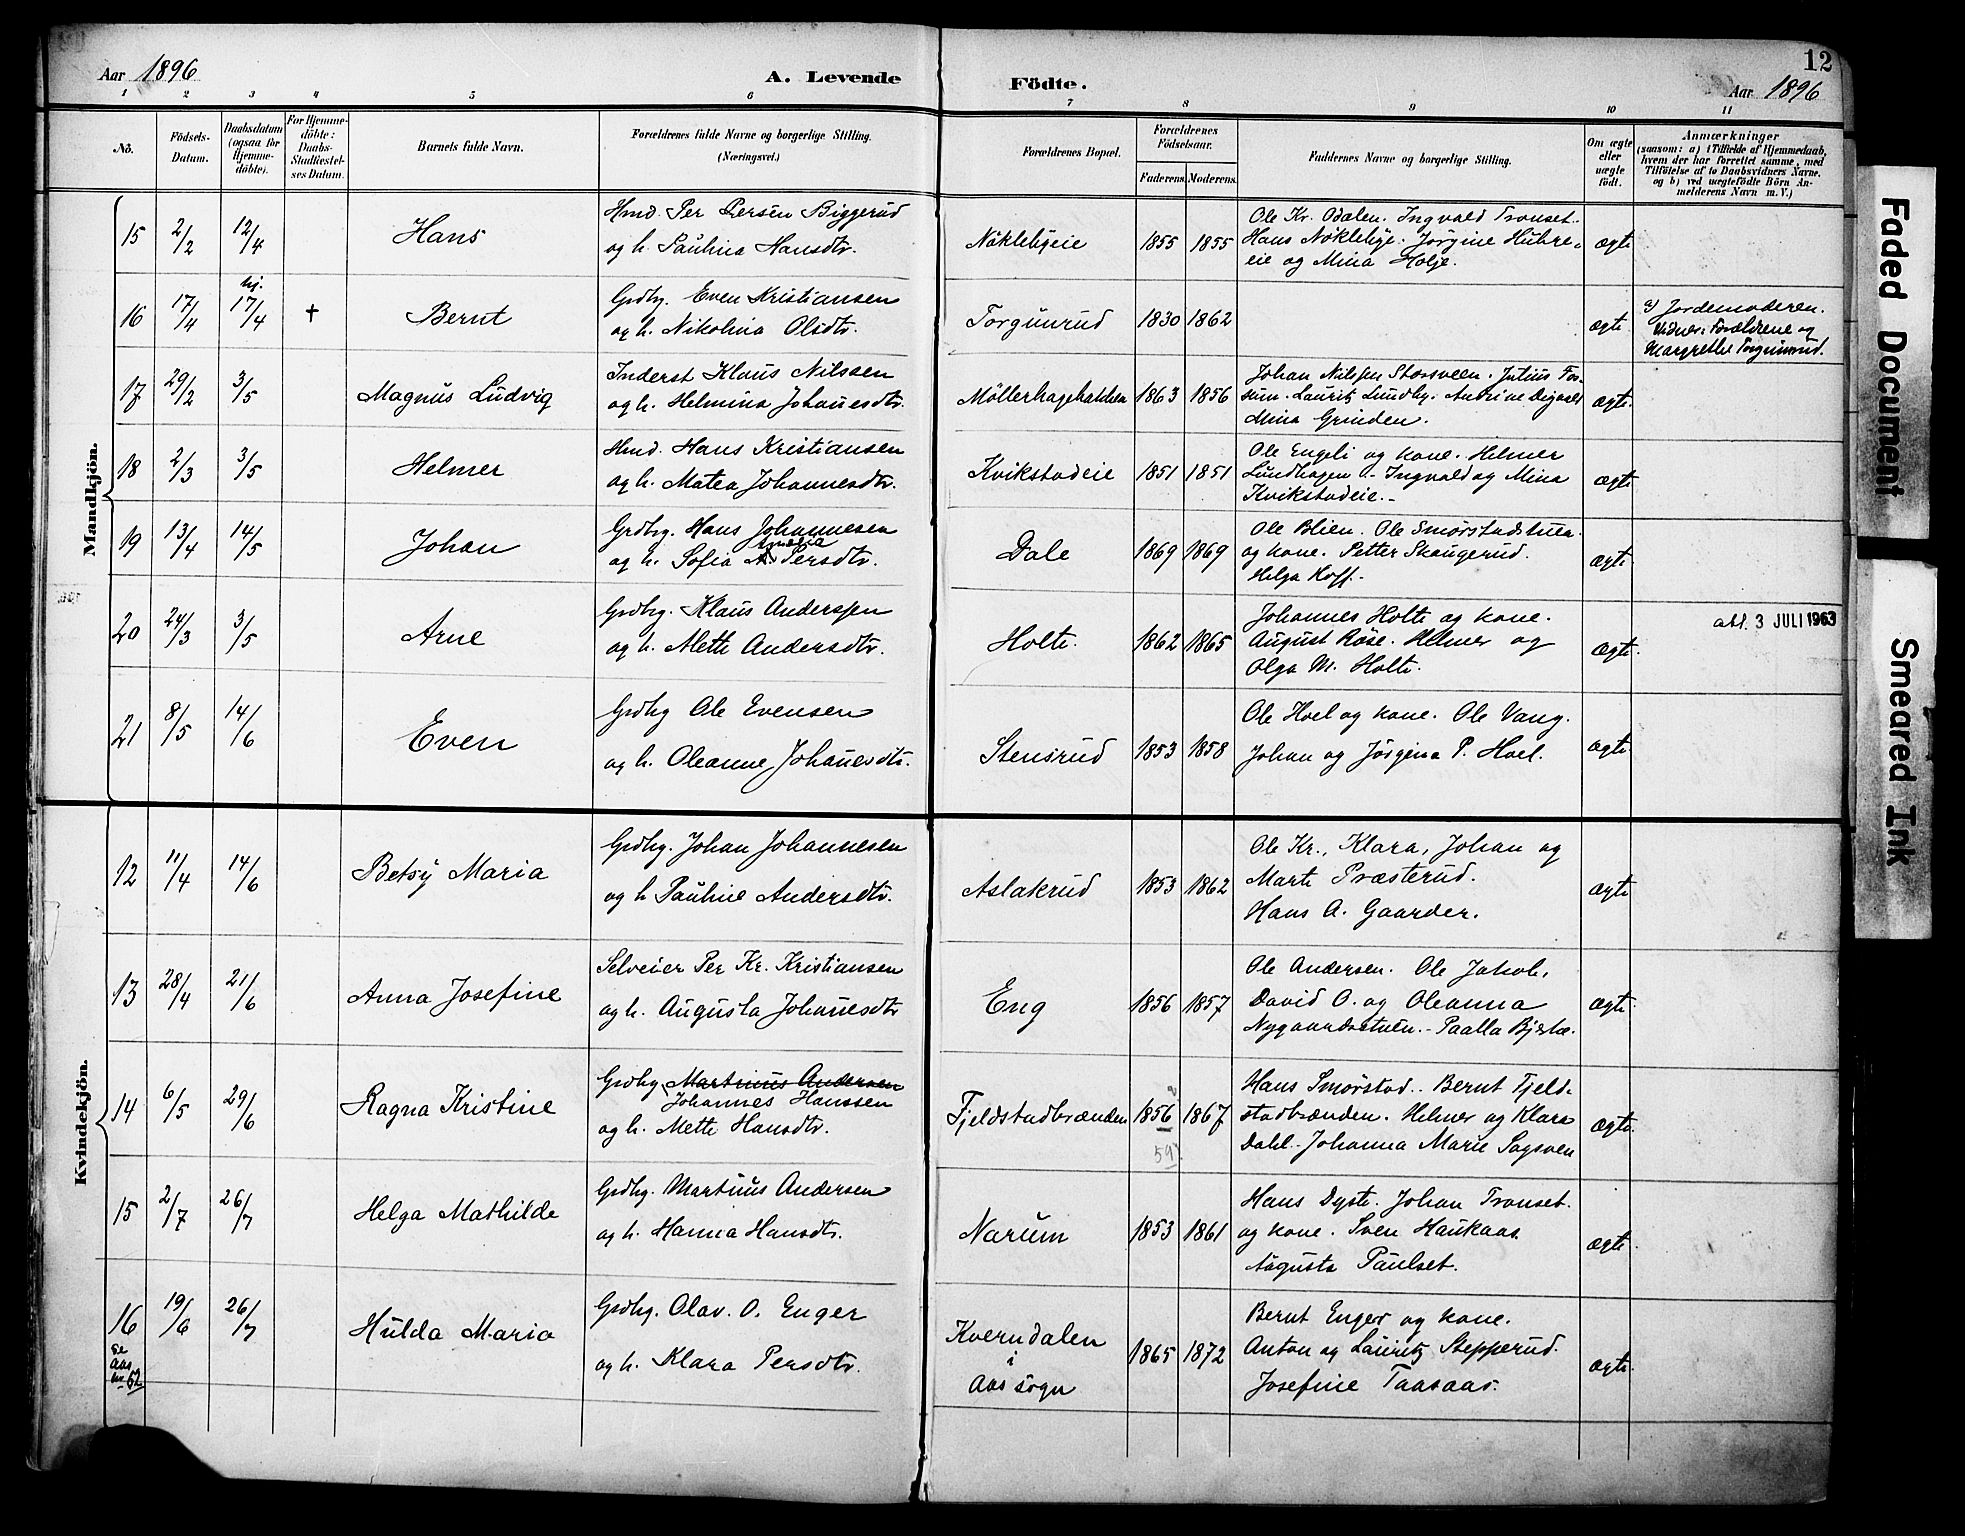 Aar 1896
A. Levende Födte.
12
Aar 1896
1 2 3 4 5 6 7 8 9 10 11
No.
Födsels-Datum.
Daabsdatum (ogsaa for Hjemme-döbte).
For Hjemme-döbte: Daabs-Stadfæstel-ses Datum.
Barnets fulde Navn.
Forældrenes fulde Navne og borgerlige Stilling.
(Næringsvei.)
Forældrenes Bopæl.
Forældrenes Födselsaar.
Faderens. Moderens.
Faddernes Navne og borgerlige Stilling.
Om ægte eller uægte födt.
Anmærkninger
(saasom: a) i Tilfælde af Hjemmedaab,
hvem der har forrettet samme, med
Tilföielse af to Daabsvidners Navne.
og b) ved uægtefödte Börn An-
melderens Navn m. V.)
Mandkjön.
15 2/2 12/4 Hans
Hmd. Per Persen Biggerud
og h. Paulina Hansdtr.
Nöklebyeie 1855 1855
Ole Kr. Dalen. Ingvald Tronset.
Hans Nöklebye. Jörgine Huhre-
eie og Mina Holje.
ægte
16 17/4 hj. 17/4 † Bernt
Grdbg. Even Kristiansen
og h. Nikolina Olsdtr.
Torgunrud 1830 1862
ægte
a) Jordemoderen.
Vidner: Forældrene og
Margrethe Torgunrud.
17 29/2 3/5 Magnus Ludvig
Inderst Klaus Nilssen
og h. Helmina Johanesdtr.
Möllerhagebakken 1863 1856
Johan Nilssen Storsveen. Julius Fos-
sum. Lauritz Lundby. Andrine
Mina Grinden.
ægte.
18 2/3 3/5 Helmer
Hmd. Hans Kristiansen
og h. Matea Johannesdtr.
Kvikstadeie 1851 1851
Ole Engeli og kone. Helmer
Lundhagen - Ingvald og Mina
Kvikstadeie.-
ægte
19 13/4 14/5 Johan
Grdbg. Hans Johannesen
Amalia
og h. Sofia A. Persdtr.
Dale 1869 1869
Ole Blien. Ole Smörstadstuen
og kone. Petter Skaugerud.
Helga Hoff.-
ægte
20 24/3 3/5 Arne
Grdbg. Klaus Anderssen
og h. Mette Andersdtr.
Holte. 1862 1865
Johannes Holte og kone.
August Röise. Helmer og
Olga M. Holte.
ægte
att. 3 JULI 1963
21 8/5 14/6 Even
Grdbg Ole Evensen
og h. Oleanne Johanesdtr.
Stensrud 1853 1858
Ole Hoel og kone. Ole Vang.
Johan og Jörgina P. Hoel.
ægte
Kvindekjön.
12 11/4 14/6 Betsy Maria
Grdbg. Johan Johannesen
og h Pauline Andersdtr.
Aslakrud 1853 1862
Ole Kr., Klara, Johan og
Marte Præsterud.
Hans A. Gaarder.
ægte
13 28/4 21/6 Anna Josefine
Selveier Per Kr. Kristiansen
og h. Augusta Johanesdtr
Eng 1856 1857
Ole Andersen. Ole Jakob,
David O. og Oleanna
Nygaardsstuen.- Paalla
ægte
14 6/5 29/6 Ragna Kristine
Grdbg. Martinus Andersen
Johannes Hanssen
og h. Mette Hansdtr.
Fjeldstadbrænden 1856 1867
59
Hans Smörstad.. Bernt Fjeld-
stadbrænden. Helmer og Klara
Dahl.- Johanna Marie Sagsveen
ægte.
15 2/7 26/7 Helga Mathilde
Grdbg. Martinus Andersen
og h. Hanna Hansdtr.
Narum 1853 1861
Hans Dyste. Johan Tronset.
og kone. Sven Haukaas.
Augusta Paulset.
ægte
16 19/6 26/7 Hulda Maria
se
Aas
nr 62
Grdbg. Olav. O. Enger
og h. Klara Persdtr.
Kverndalen
i
Aas sogn
1865 1872
Bernt Enger og kone.
Anton og Lauritz Stepperud.
Josefine Taasaas.
ægte
Faded Document
Smeared Ink